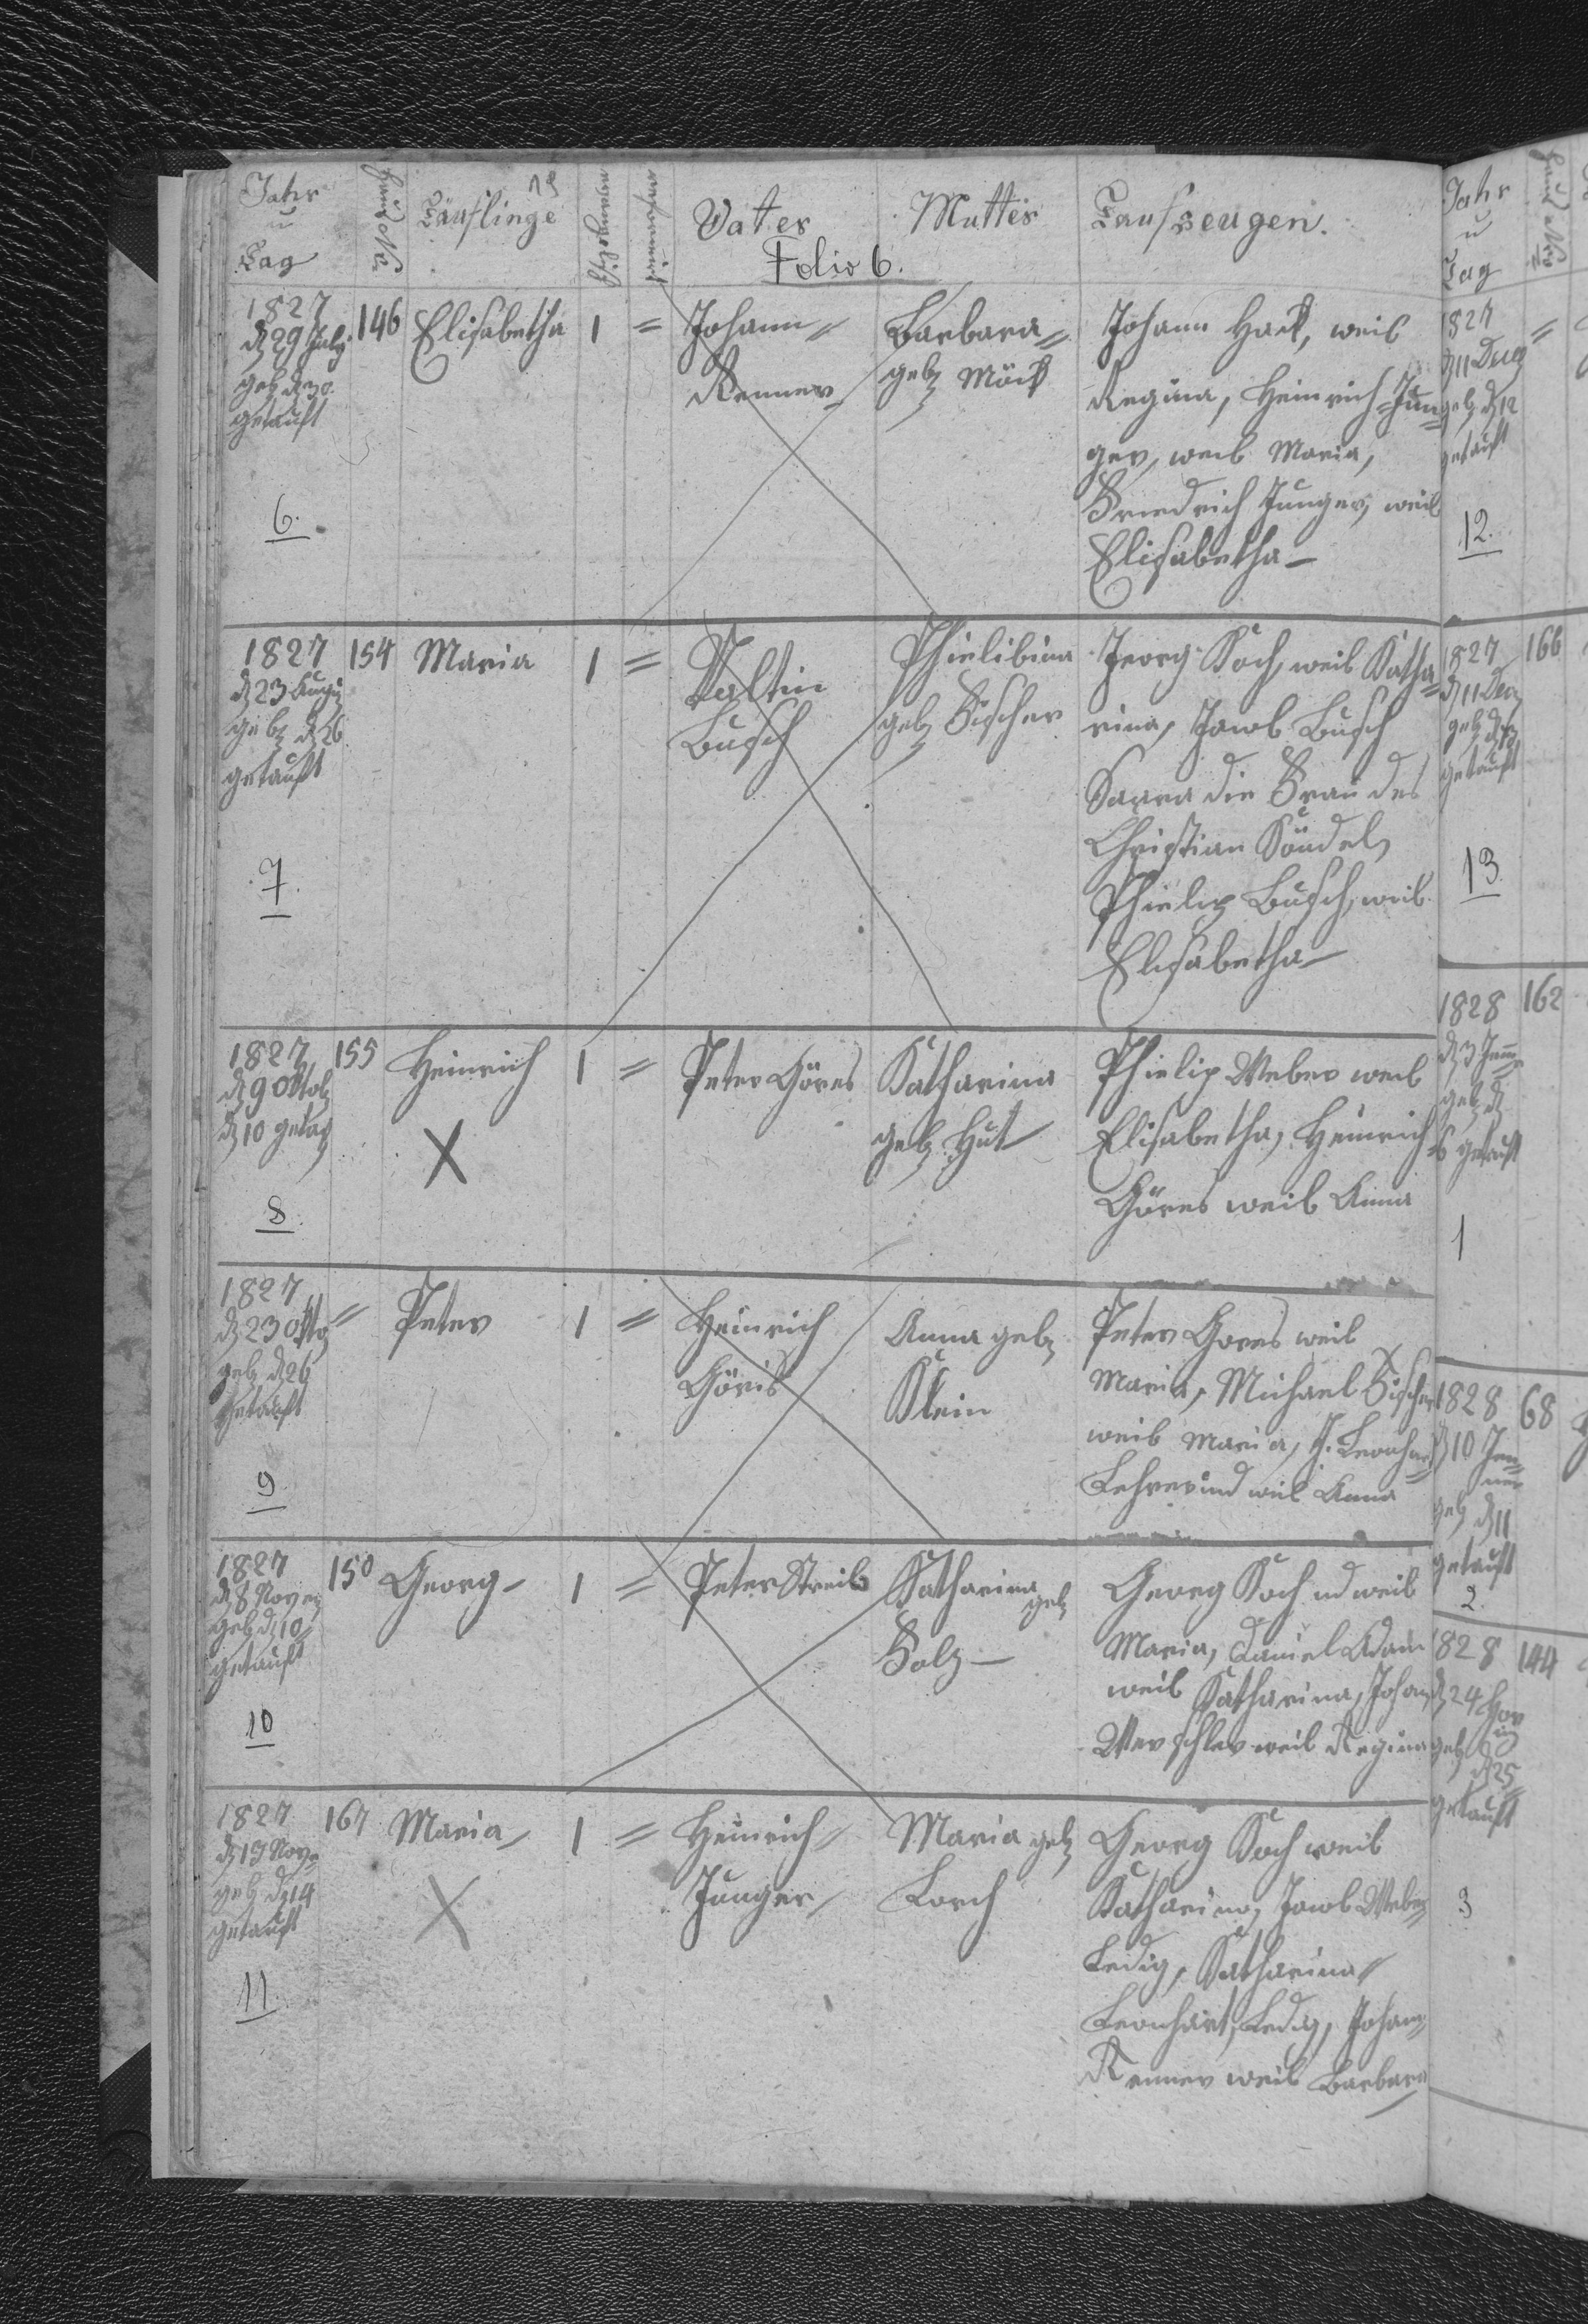 Jahr
u
Tag
Haus Nr
Täuflinge
evangelisch
reformirt
Vatter
Mutter
Taufzeugen.
Folio 6.
1827
d 29 July
geb d 30
getauft
6.
146
Elisabetha
1
=
Johann=
Renner
Barbara=
geb Möck
Johann Hack, weib
Regina, Heinrich=Jun=
ger, weib Maria,
Friedrich Junger, weib
Elisabetha—
1827
d 23 Augu
geb d 26
getauft
7.
154
Maria
1
=
Valtin
Busch
Phielibina
geb Fischer
Georg Koch, weib Katha=
rina, Jacob Busch
Sarra die Frau des
Christian Köndel,
Phielip Busch, weib
Elisabetha—
1827
d 9 Oktob
d 10 getau
8.
155
Heinrich
X
1
=
Peter Göres
Katharina
geb Hut
Phielip Weber weib
Elisabetha, Heinrich
Göres weib Anna
1827
d 23 Okto
geb d 26
getauft
9
=
Peter
1
=
Heinrich
Göris
Anna geb
Klein
Peter Gores weib
Maria, Michael Fischer
weib Maria, J. Leonhard
Lehrer und weib Anna
1827
d 8 Nov
geb d 10
getauft
10
150
Georg—
1
=
Peter Streib
Katharina
geb
Folz—
Georg Koch nd weib
Maria, Daniel Adam
weib Katharina, Johan
Werschler weib Regina
1827
d 13 Nov
geb d 14
getauft
11.
167
Maria
X
1
=
Heinrich=
Junger
Maria geb
Lorch
Georg Koch weib
Katharina, Jacob Weber
Ledig, Katharina
Leonhart, Ledig, Johann
Renner weib Barbara
Jahr
u
Tag
1827
d 11 Decz
geb d 12
getauft
12.
1827
d 11 Dec
geb
getauft
13.
166
1828
d 3 Jen
geb d
6 getauft
1
162
1828
d 10 Jen=
ner
geb d 11
getauft
2.
68
1828
d 24 Hor
geb
d 25
getauft
3
144